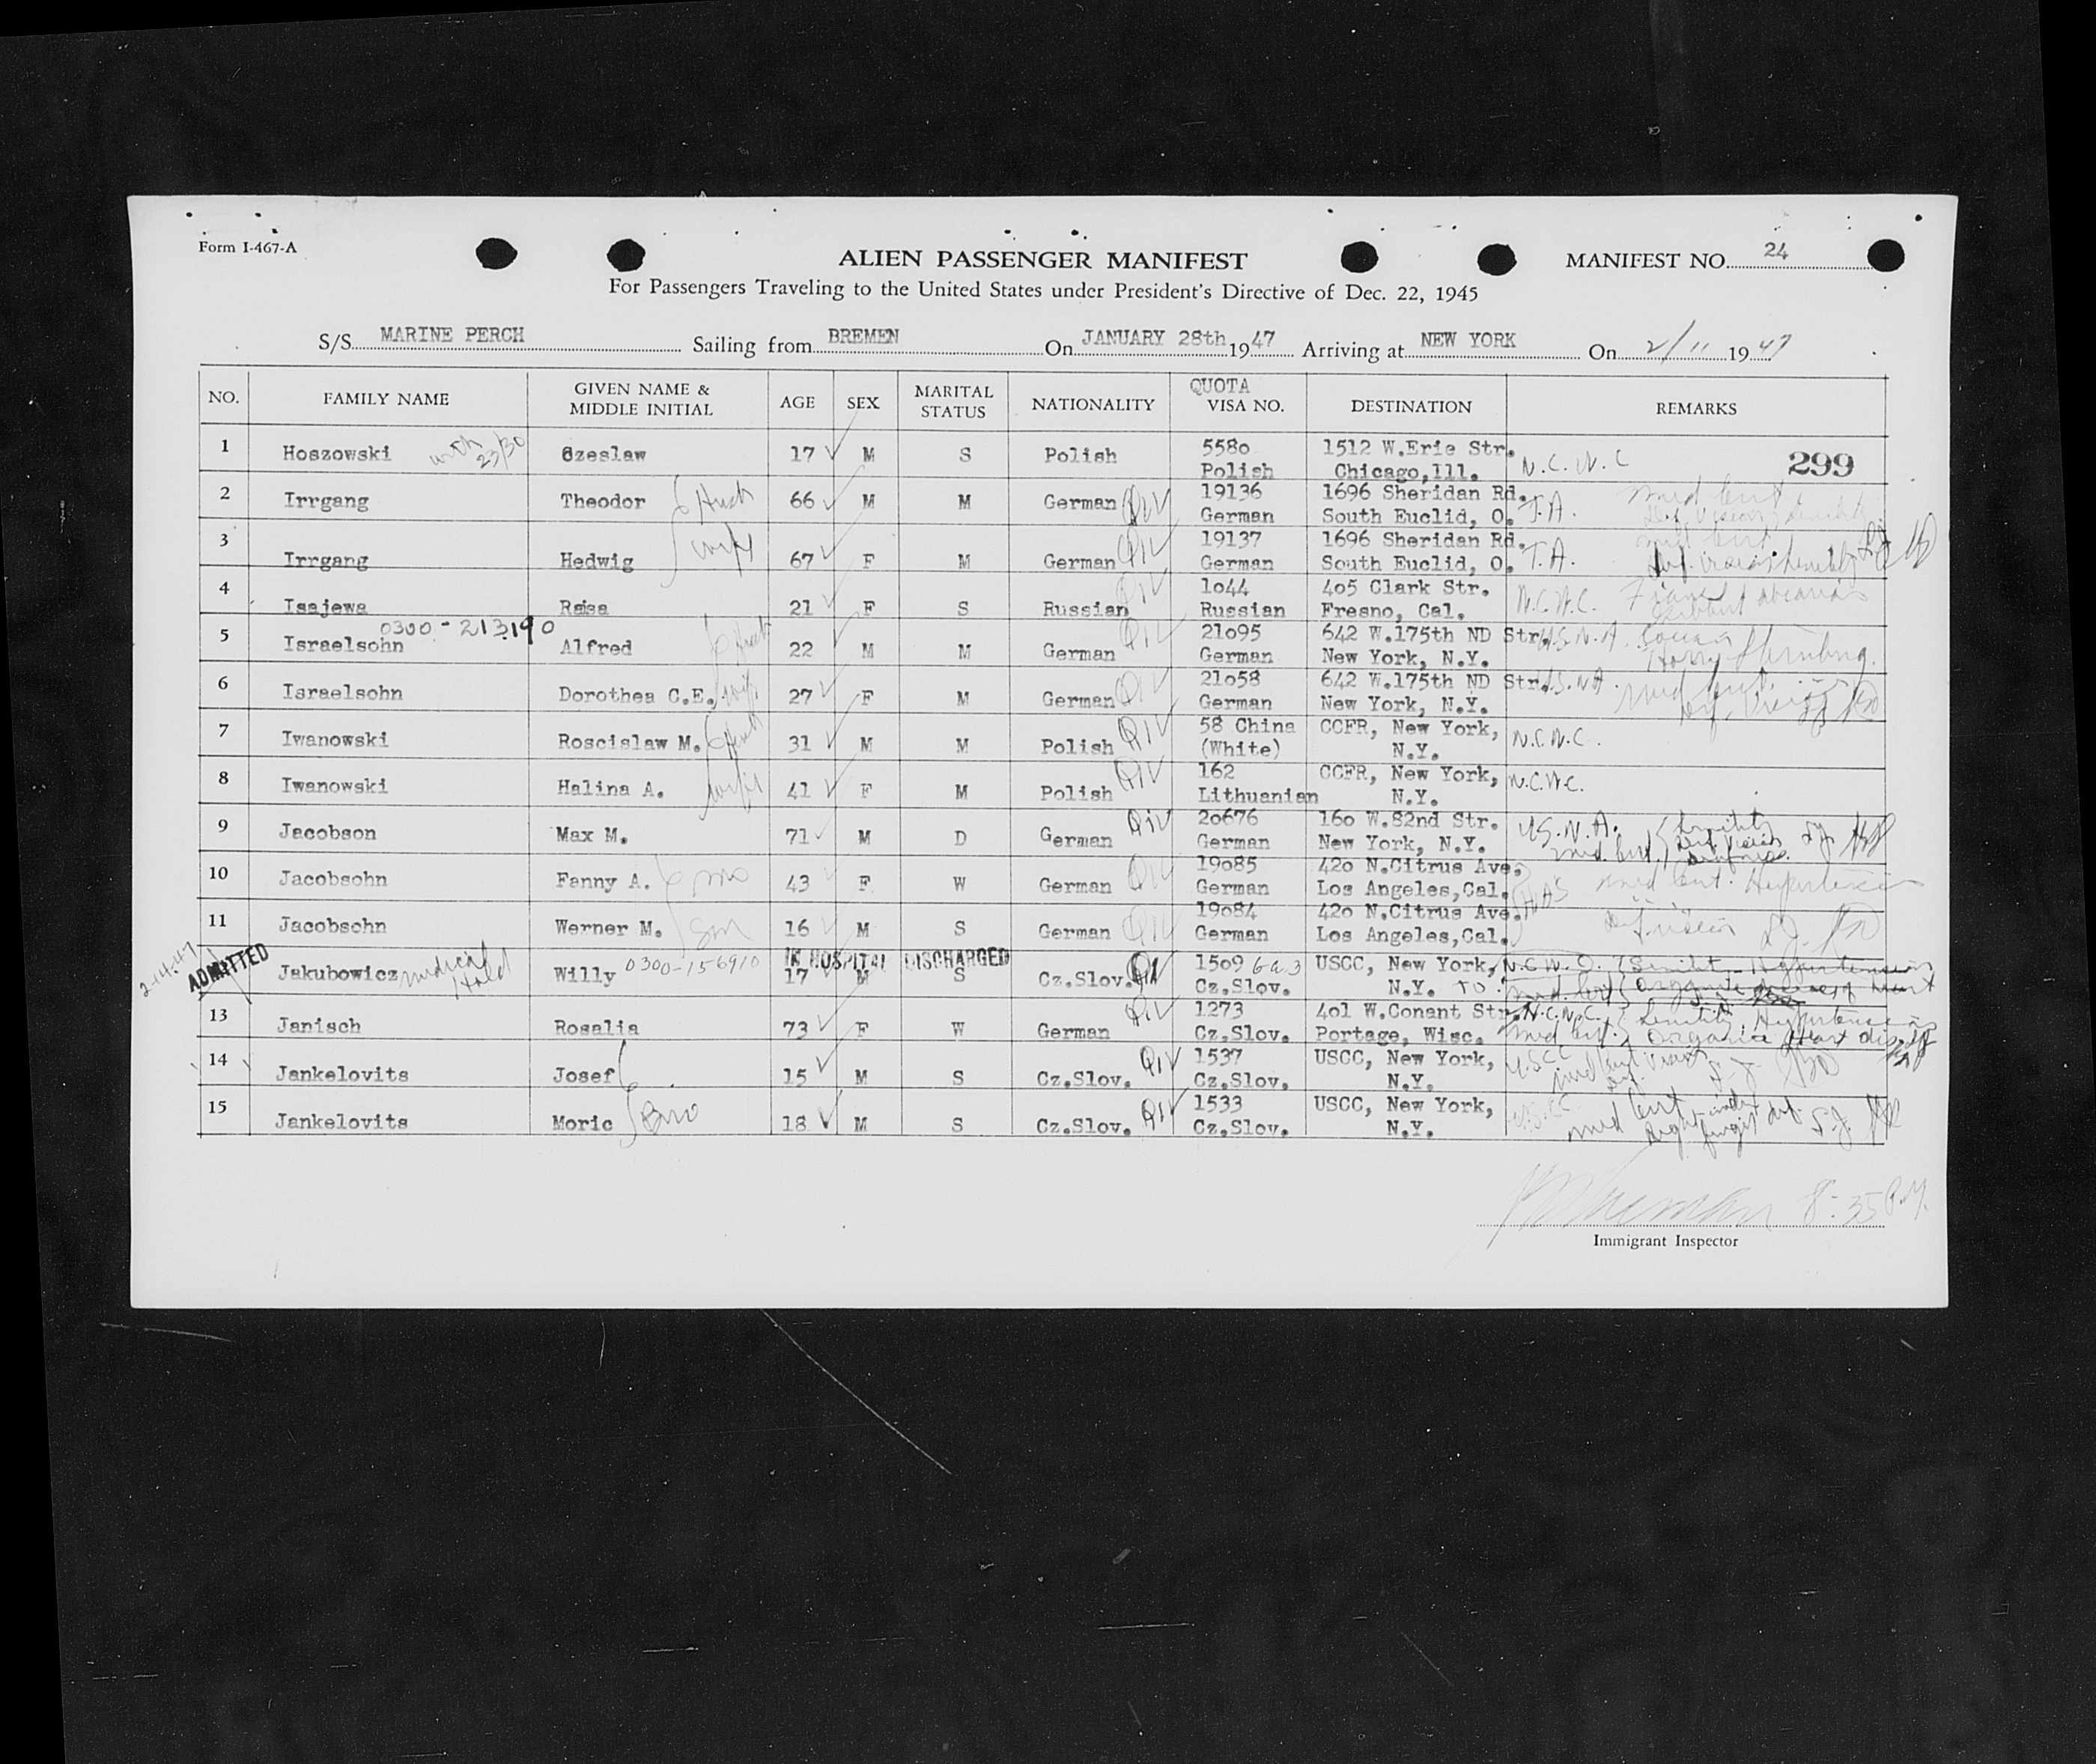 Form I-467-A
ALIEN PASSENGER MANIFEST
MANIFEST NO. 24
For Passengers Traveling to the United States under President's Directive of Dec. 22, 1945
S/S MARINE PERCH Sailing from BREMEN On JANUARY 28th 1947 Arriving at NEW YORK On 2/11 1947
NO. FAMILY NAME GIVEN NAME & MIDDLE INITIAL AGE SEX MARITAL STATUS NATIONALITY QUOTA VISA NO. DESTINATION REMARKS
299
1 Hoszowski with 23/30 Czeslaw 17 M S Polish 5580 1512 W.Erie Str. N.C.W.C
Polish Chicago,Ill.
2 Irrgang Theodor Husb 66 M M German QIV 19136 1696 Sheridan Rd. T.A. med cert
German South Euclid, O.
3 Irrgang Hedwig wife 67 F M German QIV 19137 1696 Sheridan Rd. T.A.
German South Euclid, O.
4 Isajewa Raisa 21 F S Russian QIV 1o44 4o5 Clark Str. N.C.W.C.
Russian Fresno, Cal.
0300-213190
5 Israelsohn Alfred 22 M M German QIV 21o95 642 W.175th ND Str. U.S.N.A. Cousin
German New York, N.Y. Harry
6 Israelsohn Dorothea C.E. wife 27 F M German QIV 21o58 642 W.175th ND Str. U.S.N.A. med cert
German New York, N.Y.
7 Iwanowski Roscislaw M. 31 M M Polish QIV 58 China CCFR, New York, N.C.W.C.
(White) N.Y.
8 Iwanowski Halina A. wife 41 F M Polish QIV 162 CCFR, New York, N.C.W.C.
Lithuanian N.Y.
9 Jacobson Max M. 71 M D German QIV 2o676 16o W.82nd Str. U.S.N.A. Senility
German New York, N.Y. med. cert.
10 Jacobsohn Fanny A. mo 43 F W German QIV 19o85 42o N.Citrus Ave. HIAS med cert. Hypertension
German Los Angeles,Cal.
11 Jacobsohn Werner M. son 16 M S German QIV 19o84 42o N.Citrus Ave.
German Los Angeles,Cal.
2-14-47 ADMITTED Jakubowicz medical Hold Willy 0300-156910 17 M S IN HOSPITAL DISCHARGED Cz.Slov. 15o9 USCC, New York, N.C.W.C. Senility Hypertension
Cz.Slov. N.Y. TO
13 Janisch Rosalia 73 F W German QIV 1273 4o1 W.Conant Str. N.C.W.C. Senility, Hypertension
Cz.Slov. Portage, Wisc. med cert. Organic Heart dis.
14 Jankelovits Josef 15 M S Cz.Slov. QIV 1537 USCC, New York, U.S.C.C.
Cz.Slov. N.Y. med cert
15 Jankelovits Moric Bro 18 M S Cz.Slov. QIV 1533 USCC, New York, U.S.C.C.
Cz.Slov. N.Y. med cert
8:35 P.M.
Immigrant Inspector